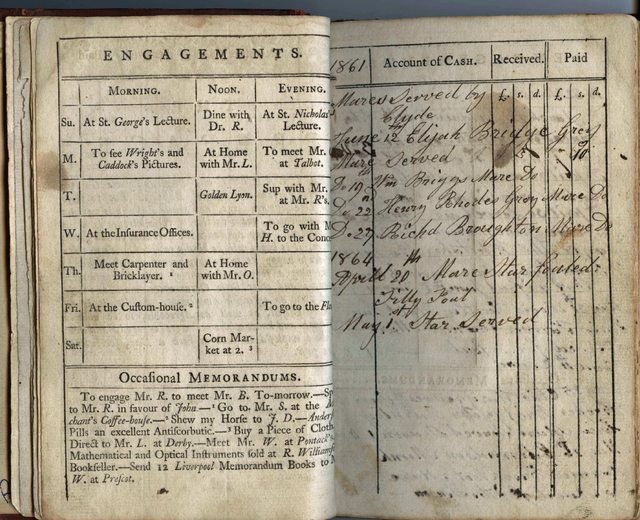 ENGAGEMENTS.
MORNING. NOON. EVENING.
Su. At St. George's Lecture. Dine with Dr. R. At St. Nicholas' Lecture.
M. To see Wright's and Caddock's Pictures. At Home with Mr. L. To meet Mr. at Talbot.
T. Golden Lyon. Sup with Mr. at Mr. R's.
W. At the Insurance Offices. To go with M H. to the Conc
Th. Meet Carpenter and Bricklayer. ¹ At Home with Mr. O.
Fri. At the Custom-house. ² To go to the
Sat. Corn Market at 2. ³
Occasional MEMORANDUMS.
To engage Mr. R. to meet Mr. B. To-morrow.—
to Mr. R. in favour of John.—¹ Go to Mr. S. at the
chant's Coffee-house.—² Shew my Horse to J. D.—Anders
Pills an excellent Antiscorbutic.—³ Buy a Piece of Cloth
Direct to Mr. L. at Derby.—Meet Mr. W. at Pontack's
Mathematical and Optical Instruments sold at R. Williams
Bookseller.—Send 12 Liverpool Memorandum Books to
W. at Prescot.
1861 Account of CASH. Received. Paid
£. s. d. £. s. d.
Mares Served by
Clyde
June 12 Elijah Bridge Grey
Mare Served 10
Do 19 Wm Briggs Mare Do
Do 22 Henry Rhodes Grey Mare Do
Do 27 Richd Broughton Mare Do
1864
Aprill 30th Mare Star foaled
Filly Foal
May 1st Star Served